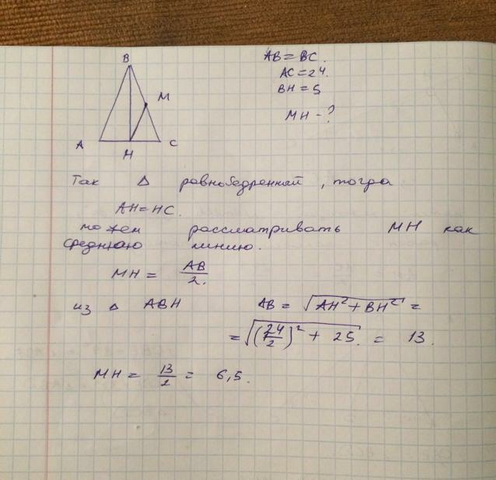 B
M
A
H
C
AB = BC.
AC = 24.
BH = 5
MH - ?
Так Δ равнобедренный, тогда
AH = HC.
можем рассматривать MH как
среднюю линию.
MH = AB/2.
из Δ ABH AB = √(AH² + BH²) =
= √((24/2)² + 25) = 13.
MH = 13/2 = 6,5.